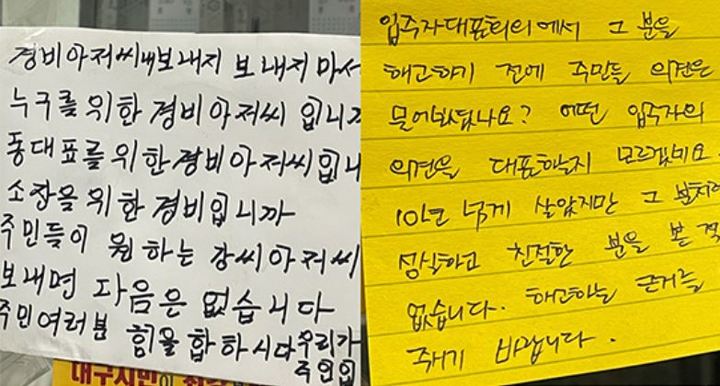 경비아저씨내보내지 보내지 마서
누구를 위한 경비아저씨 입니까
동대표를 위한 경비아저씨입니
소장을 위한 경비입니까
주민들이 원하는 강씨아저씨
보내면 다음은 없습니다
주민여러분 힘을 합하시다 우리가
주인입
대구시민이
입주자대표회의에서 그 분을
해고하기 전에 주민들 의견은
물어보셨나요? 어떤 입주자의
의견을 대표하는지 모르겠네요.
10년 넘게 살았지만 그 분처럼
성실하고 친절한 분을 본 적
없습니다. 해고하는 근거를
주시기 바랍니다.